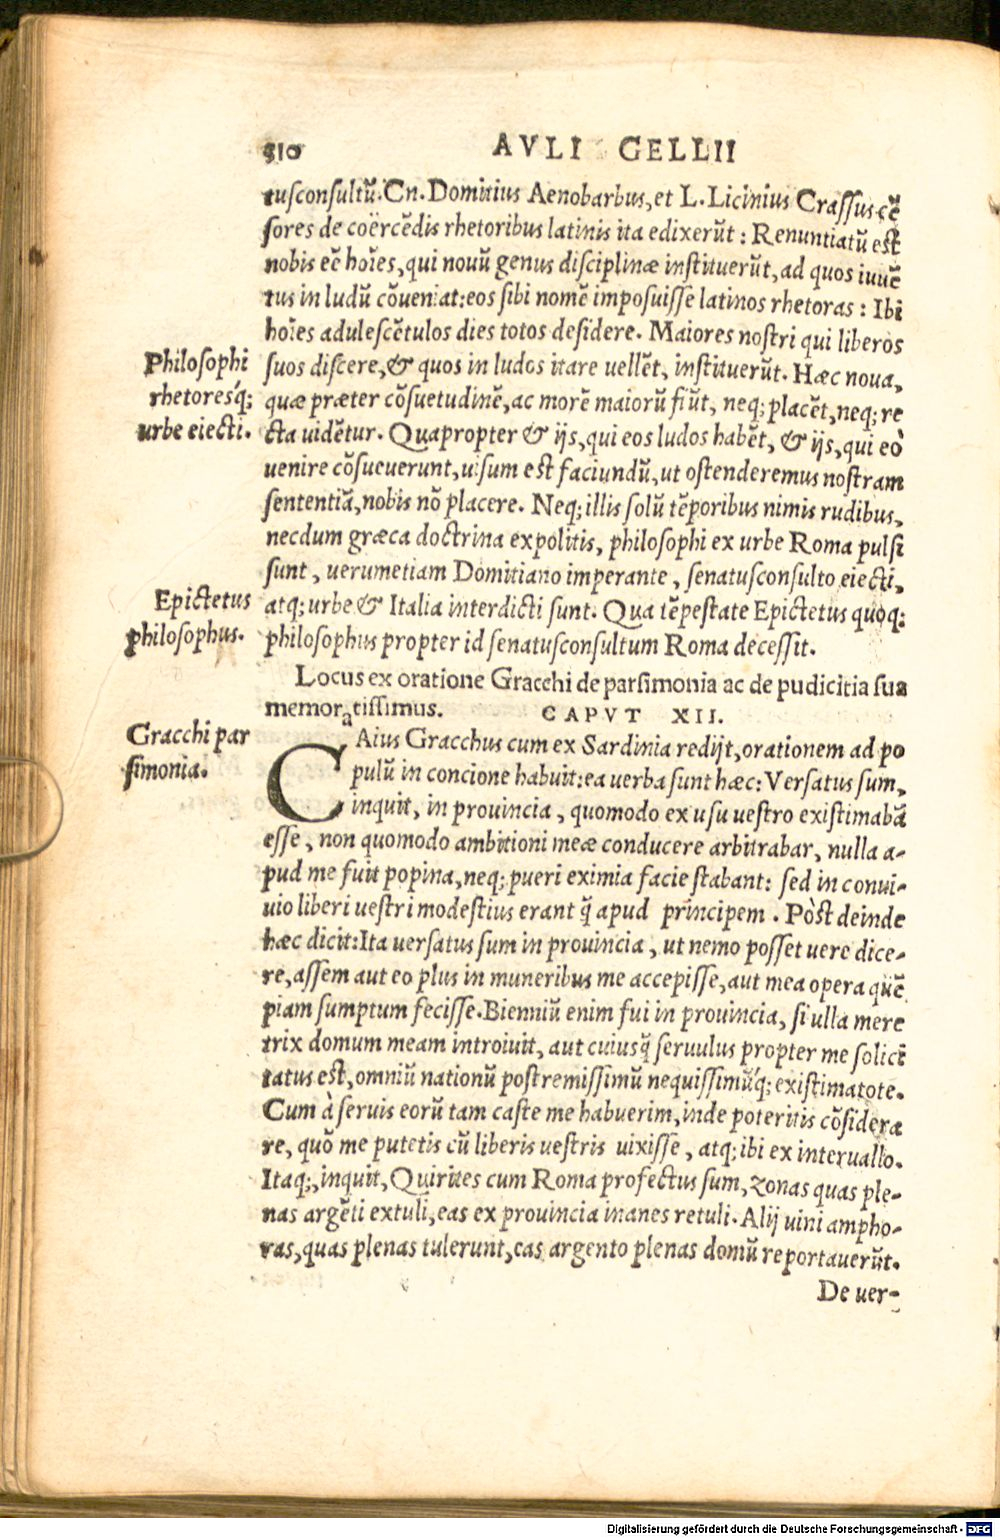 310 AVLI GELLII
tusconsultũ. Cn. Domitius Aenobarbus, et L. Licinius Crassus cẽ
sores de coërcẽdis rhetoribus latinis ita edixerũt: Renuntiatũ est
nobis eẽ hoĩes, qui nouũ genus disciplinæ instituerũt, ad quos iuuẽ
tus in ludũ cõueniat: eos sibi nomẽ imposuisse latinos rhetoras: Ibi
hoĩes adulescẽtulos dies totos desidere. Maiores nostri qui liberos
Philosophi
rhetoresq́;
urbe eiecti.
suos discere, & quos in ludos itare uellẽt, instituerũt. Hæc noua,
quæ præter cõsuetudinẽ, ac morẽ maiorũ fiũt, neq; placẽt, neq; re
cta uidẽtur. Quapropter & ijs, qui eos ludos habẽt, & ijs, qui eò
uenire cõsueuerunt, uisum est faciundũ, ut ostenderemus nostram
sententiã, nobis nõ placere. Neq; illis solũ tẽporibus nimis rudibus,
necdum græca doctrina expolitis, philosophi ex urbe Roma pulsi
sunt, uerumetiam Domitiano imperante, senatusconsulto eiecti,
Epictetus
philosophus.
atq; urbe & Italia interdicti sunt. Qua tẽpestate Epictetus quoq;
philosophus propter id senatusconsultum Roma decessit.
Locus ex oratione Gracchi de parsimonia ac de pudicitia sua
memoratissimus. CAPVT XII.
Gracchi par
simonia.
CAius Gracchus cum ex Sardinia redijt, orationem ad po
pulũ in concione habuit: ea uerba sunt hæc: Versatus sum,
inquit, in prouincia, quomodo ex usu uestro existimabã
esse, non quomodo ambitioni meæ conducere arbitrabar, nulla a-
pud me fuit popina, neq; pueri eximia facie stabant: sed in conui-
uio liberi uestri modestius erant q̃ apud principem. Pòst deinde
hæc dicit: Ita uersatus sum in prouincia, ut nemo posset uere dice-
re, assem aut eo plus in muneribus me accepisse, aut mea opera quẽ
piam sumptum fecisse. Bienniũ enim fui in prouincia, si ulla mere
trix domum meam introiuit, aut cuiusq̃ seruulus propter me solici
tatus est, omniũ nationũ postremissimũ nequissimũq́; existimatote.
Cum à seruis eorũ tam caste me habuerim, inde poteritis cõsidera
re, quõ me putetis cũ liberis uestris uixisse, atq; ibi ex interuallo.
Itaq;, inquit, Quirites cum Roma profectus sum, zonas quas ple-
nas argẽti extuli, eas ex prouincia inanes retuli. Alij uini ampho-
ras, quas plenas tulerunt, eas argento plenas domũ reportauerũt.
De uer-
Digitalisierung gefördert durch die Deutsche Forschungsgemeinschaft - DFG